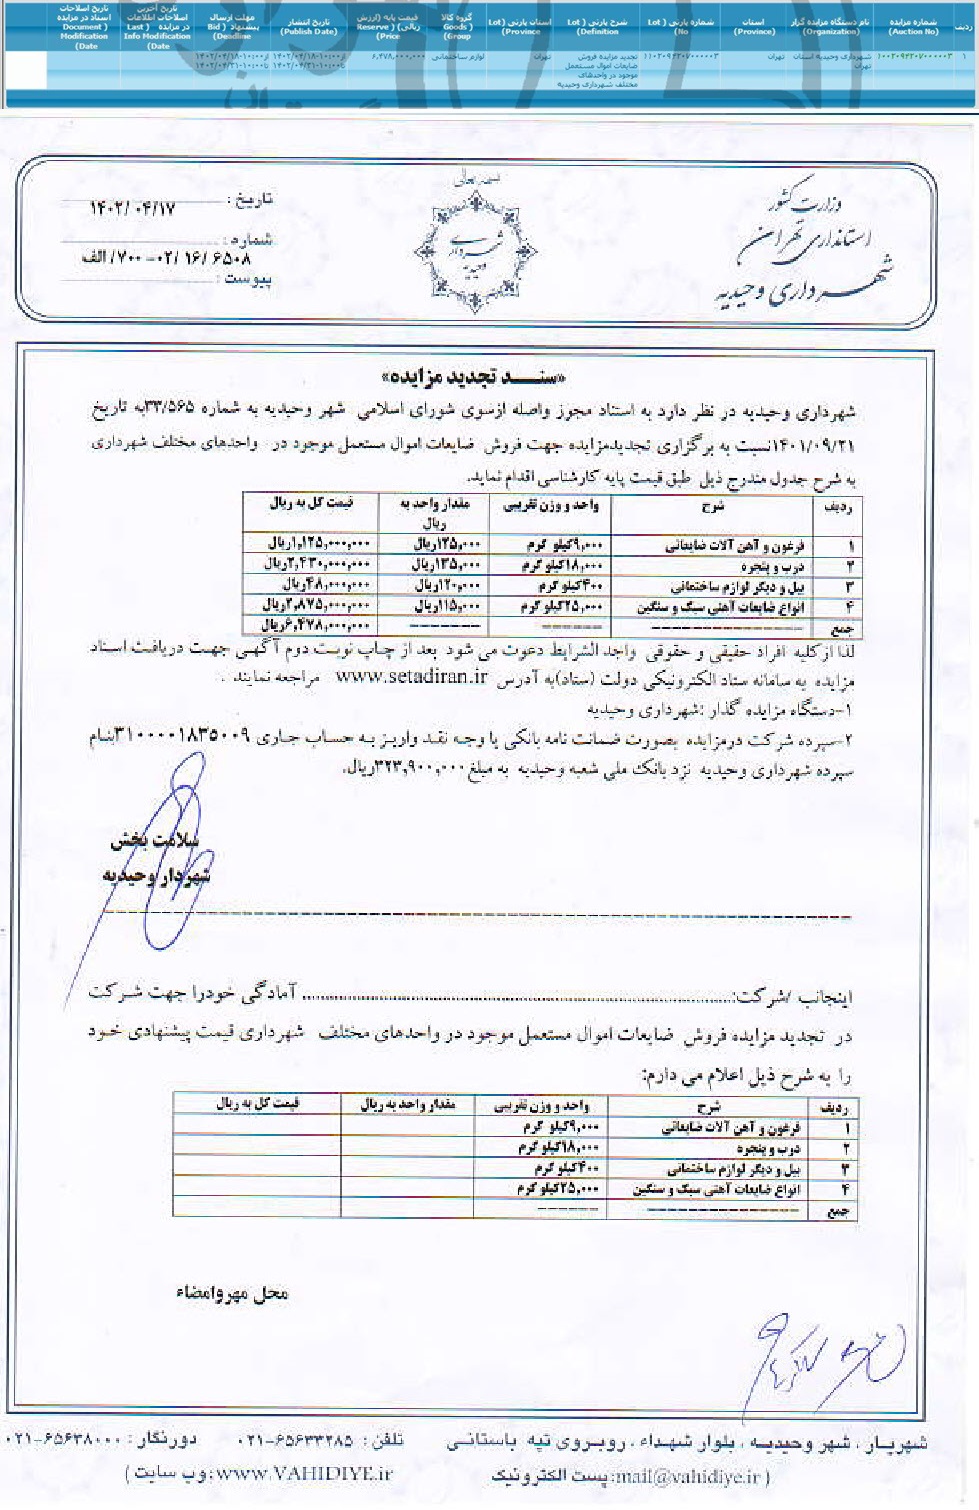 ردیف
شماره مزایده (Auction No)
نام دستگاه مزایده گزار (Organization)
استان (Province)
شماره پارتی (Lot No)
شرح پارتی (Lot Definition)
استان پارتی (Lot Province)
گروه کالا (Goods Group)
قیمت پایه (ارزش ریالی) (Reserve Price)
تاریخ انتشار (Publish Date)
مهلت ارسال پیشنهاد (Bid Deadline)
تاریخ آخرین اصلاحات اطلاعات در مزایده (Last Info Modification Date)
تاریخ اصلاحات اسناد در مزایده (Document Modification Date)
۱
شهرداری وحیدیه استان تهران
تهران
تجدید مزایده فروش ضایعات اموال مستعمل موجود در واحدهای مختلف شهرداری وحیدیه
تهران
لوازم ساختمانی
۶,۴۷۸,۰۰۰,۰۰۰
بسمه تعالی
وزارت کشور
استانداری تهران
شهرداری وحیدیه
شهرداری وحیدیه
تاریخ : ۱۴۰۲/۰۴/۱۷
شماره : ۶۵۰۸ /۱۶ /۰۲-۷۰۰/الف
پیوست :
«سنــد تجدید مزایده»
شهرداری وحیدیه در نظر دارد به استناد مجوز واصله ازسوی شورای اسلامی شهر وحیدیه به شماره ۳۳/۵۶۵به تاریخ
۱۴۰۱/۰۹/۲۱نسبت به برگزاری تجدیدمزایده جهت فروش ضایعات اموال مستعمل موجود در واحدهای مختلف شهرداری
به شرح جدول مندرج ذیل طبق قیمت پایه کارشناسی اقدام نماید.
ردیف شرح واحد و وزن تقریبی مقدار واحد به ریال قیمت کل به ریال
۱ فرغون و آهن آلات ضایعاتی ۹,۰۰۰کیلو گرم ۱۲۵,۰۰۰ریال ۱,۱۲۵,۰۰۰,۰۰۰ریال
۲ درب و پنجره ۱۸,۰۰۰کیلو گرم ۱۳۵,۰۰۰ریال ۲,۴۳۰,۰۰۰,۰۰۰ریال
۳ بیل و دیگر لوازم ساختمانی ۴۰۰کیلو گرم ۱۲۰,۰۰۰ریال ۴۸,۰۰۰,۰۰۰ریال
۴ انواع ضایعات آهنی سبک و سنگین ۲۵,۰۰۰کیلو گرم ۱۱۵,۰۰۰ریال ۲,۸۷۵,۰۰۰,۰۰۰ریال
جمع ---------------- ------ ------- ۶,۴۷۸,۰۰۰,۰۰۰ریال
لذا ازکلیه افراد حقیقی و حقوقی واجد الشرایط دعوت می شود بعد از چاپ نوبت دوم آگهی جهت دریافت اسناد
مزایده به سامانه ستاد الکترونیکی دولت (ستاد)به آدرس www.setadiran.ir مراجعه نمایند .
۱-دستگاه مزایده گذار :شهرداری وحیدیه
۲-سپرده شرکت درمزایده بصورت ضمانت نامه بانکی یا وجه نقد واریز به حساب جاری ۳۱۰۰۰۰۱۸۳۵۰۰۹بنام
سپرده شهرداری وحیدیه نزد بانک ملی شعبه وحیدیه به مبلغ۳۲۳,۹۰۰,۰۰۰ریال.
سلامت بخش
شهردار وحیدیه
اینجانب /شرکت:........................................ آمادگی خودرا جهت شرکت
در تجدید مزایده فروش ضایعات اموال مستعمل موجود در واحدهای مختلف شهرداری قیمت پیشنهادی خود
را به شرح ذیل اعلام می دارم:
ردیف شرح واحد و وزن تقریبی مقدار واحد به ریال قیمت کل به ریال
۱ فرغون و آهن آلات ضایعاتی ۹,۰۰۰کیلو گرم
۲ درب و پنجره ۱۸,۰۰۰کیلو گرم
۳ بیل و دیگر لوازم ساختمانی ۴۰۰کیلو گرم
۴ انواع ضایعات آهنی سبک و سنگین ۲۵,۰۰۰کیلو گرم
جمع ---------------- ------
محل مهروامضاء
شهریار ، شهر وحیدیه ، بلوار شهداء ، روبروی تپه باستانی تلفن : ۰۲۱-۶۵۶۳۳۲۸۵ دورنگار : ۰۲۱-۶۵۶۳۸۰۰۰
( mail@vahidiye.ir:پست الکترونیک www.VAHIDIYE.ir:وب سایت )